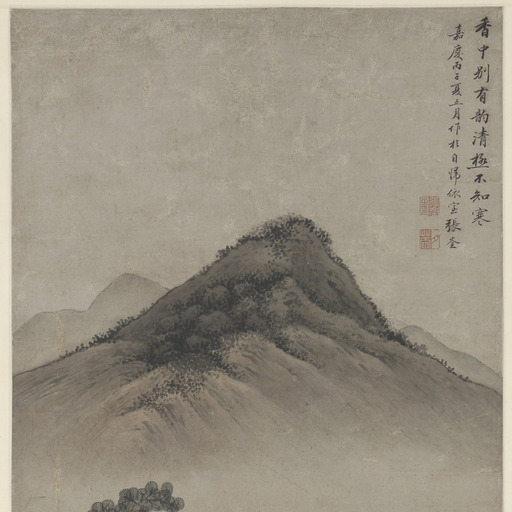 香中別有韵清極不知寒
嘉慶丙子夏五月作於自怡依室張崟